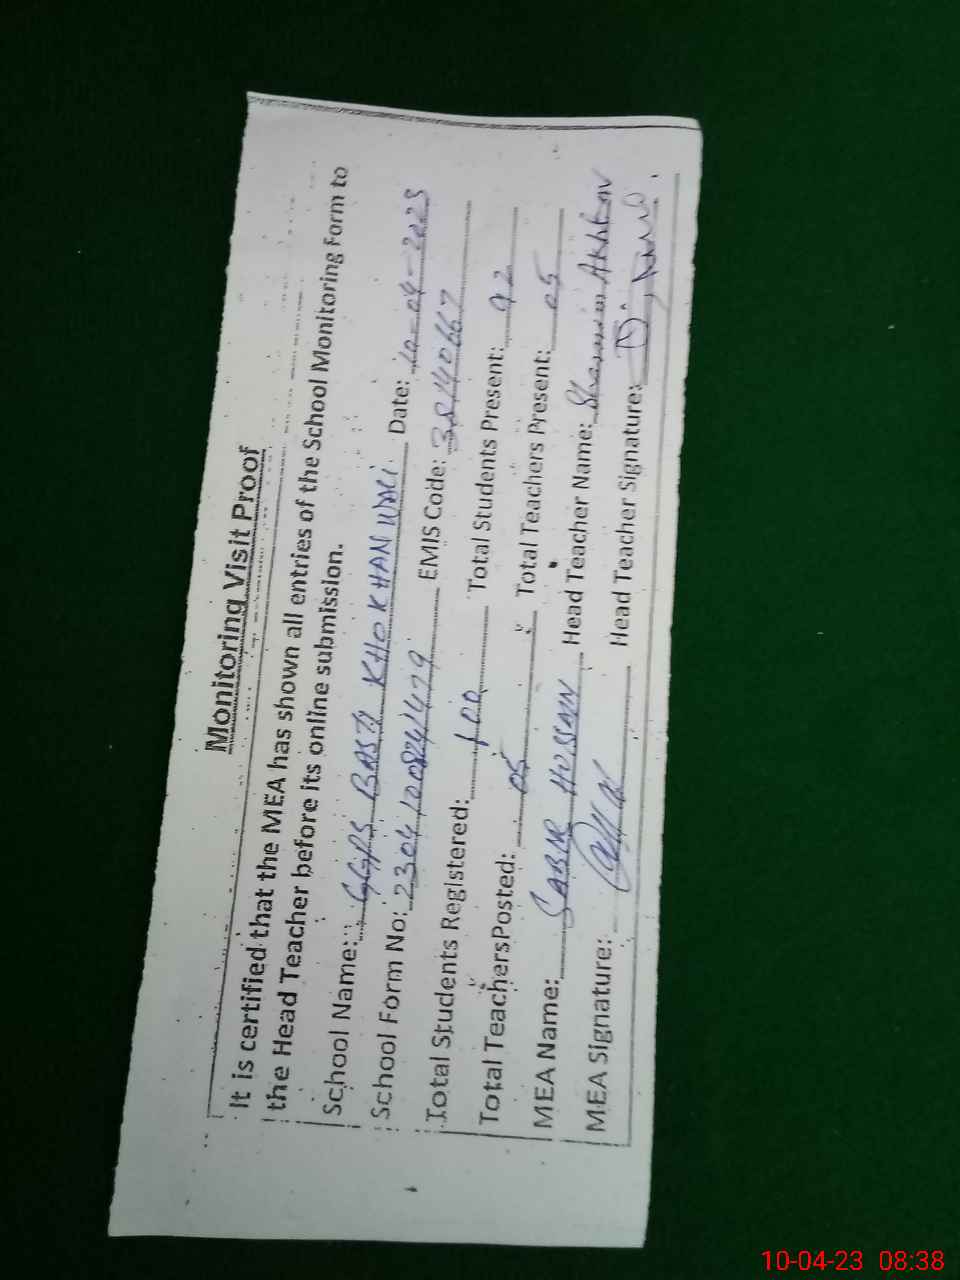 Monitoring Visit Proof
It is certified that the MEA has shown all entries of the School Monitoring Form to
the Head Teacher before its online submission.
School Name: GGPS BASTI KHOKHAN WALI Date: 10-04-2023
School Form No: EMIS Code: 38140667
Total Students Registered: 100 Total Students Present: 92
Total TeachersPosted: 05 Total Teachers Present: 05
MEA Name: SABIR HUSSAIN Head Teacher Name: Shamim Akhtar
MEA Signature: Head Teacher Signature:
10-04-23 08:38